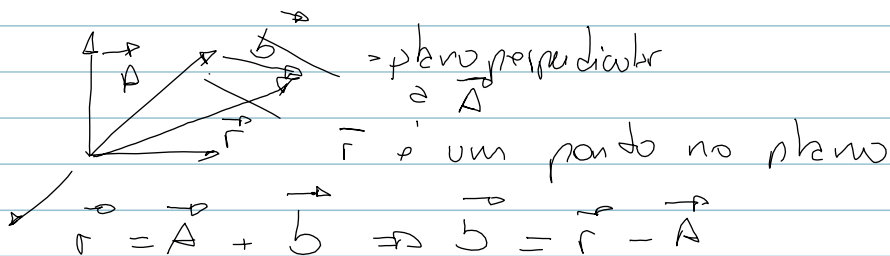 A⃗ b⃗ → plano perpendicular
a A⃗
r⃗ r̄ é um ponto no plano
r⃗ = A⃗ + b⃗ ⇒ b⃗ = r⃗ − A⃗